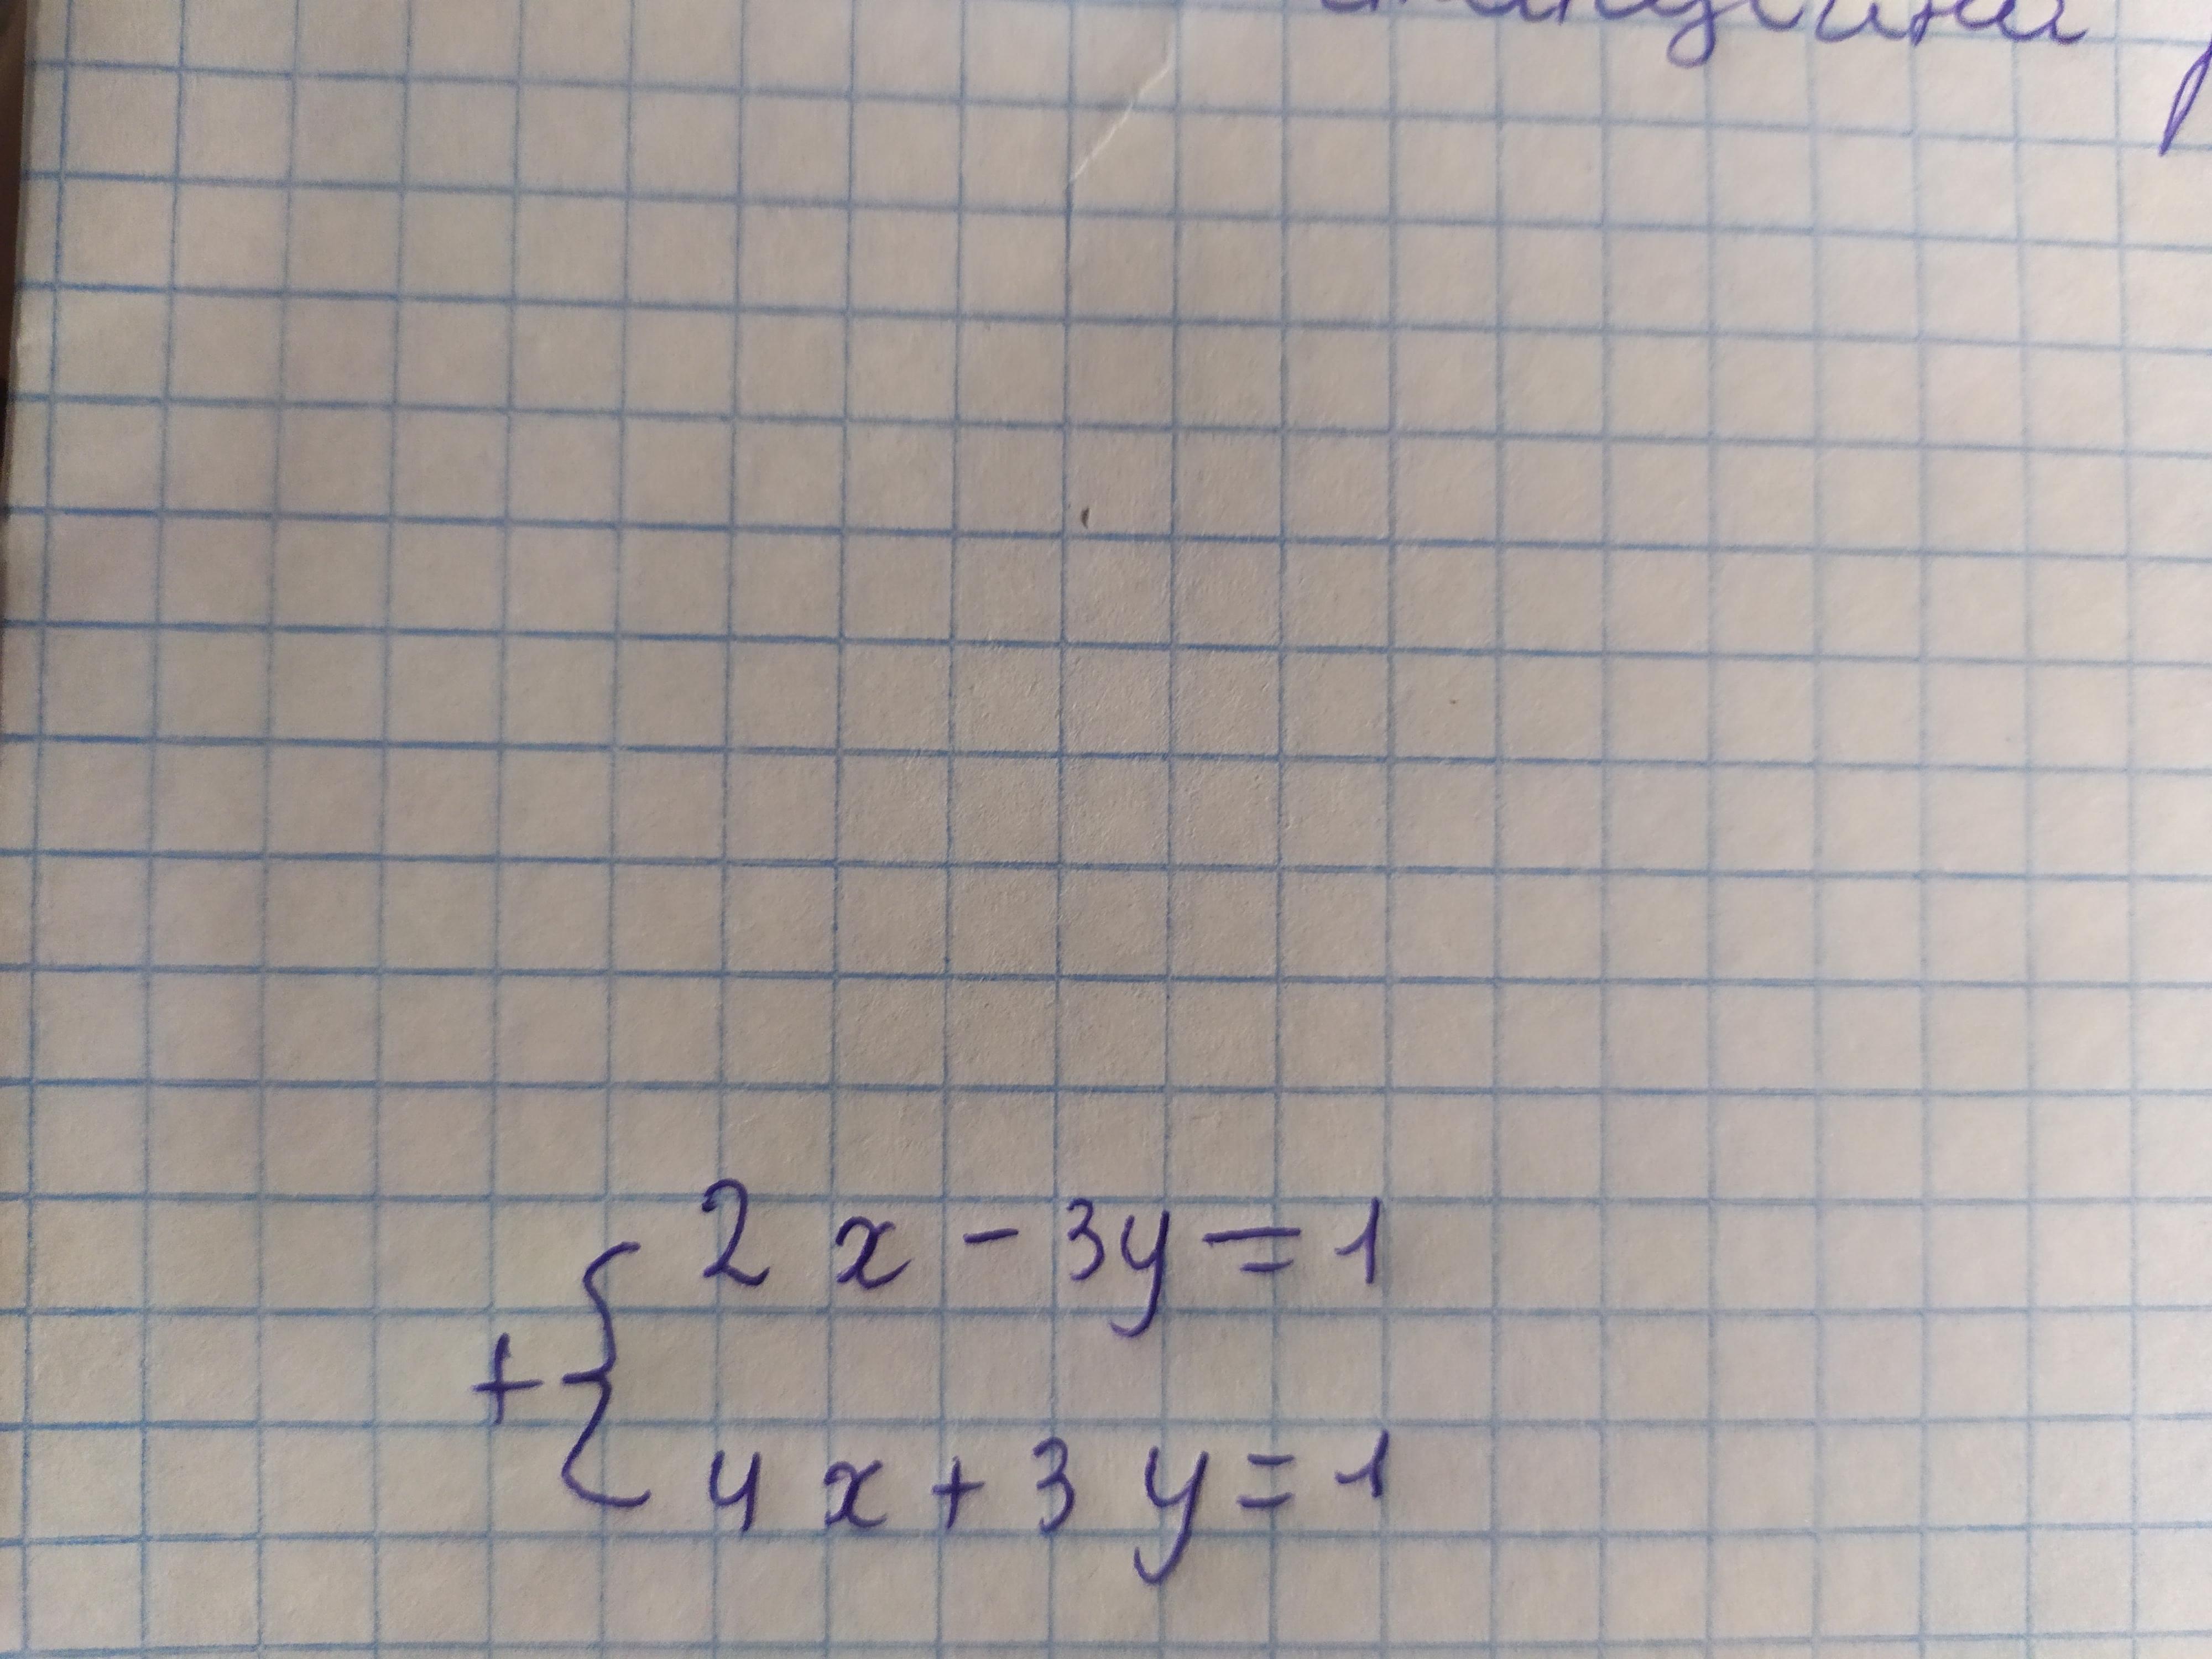 2x - 3y = 1
+{
4x + 3y = 1